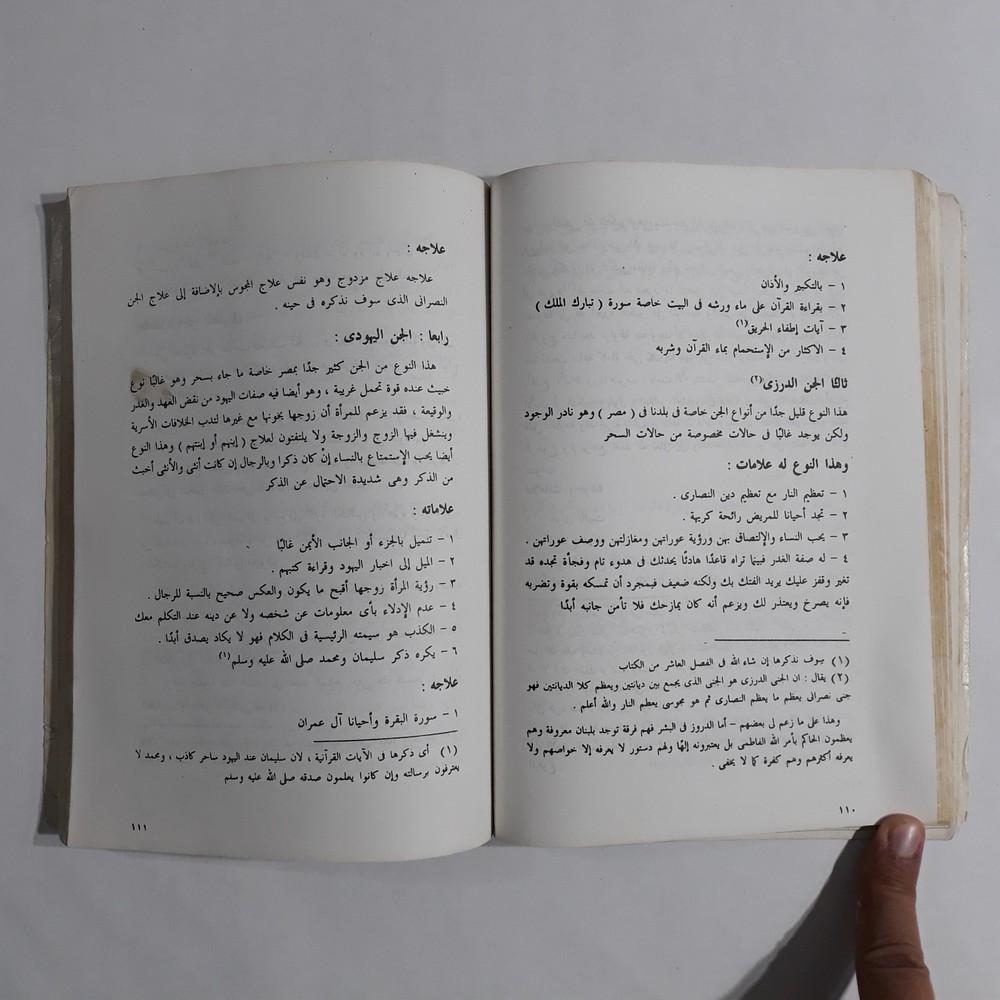 علاجه :
١ - بالتكبير والأذان
٢ - بقراءة القرآن على ماء ورشه فى البيت خاصة سورة ( تبارك الملك )
٣ - آيات إطفاء الحريق(١)
٤ - الاكثار من الإستحمام بماء القرآن وشربه
ثالثًا الجن الدرزى(٢)
هذا النوع قليل جدًا من أنواع الجن خاصة فى بلدنا فى ( مصر ) وهو نادر الوجود
ولكن يوجد غالبًا فى حالات مخصوصة من حالات السحر
وهذا النوع له علامات :
١ - تعظيم النار مع تعظيم دين النصارى .
٢ - تجد أحيانا للمريض رائحة كريهة .
٣ - يحب النساء والإلتصاق بهن ورؤية عوراتهن ومغازلتهن ووصف عوراتهن .
٤ - له صفة الغدر فبينما تراه قاعدًا هادئًا يحدثك فى هدوء تام وفجأة تجده قد
تغير وقفز عليك يريد الفتك بك ولكنه ضعيف فبمجرد أن تمسكه بقوة وتضربه
فإنه يصرخ ويعتذر لك ويزعم أنه كان يمازحك فلا تأمن جانبه أبدًا
(١) سوف نذكرها إن شاء الله فى الفصل العاشر من الكتاب
(٢) يقال : ان الجنى الدرزى هو الجنى الذى يجمع بين ديانتين ويعظم كلا الديانتين فهو
جنى نصرانى يعظم ما يعظم النصارى ثم هو مجوسى يعظم النار والله أعلم .
وهذا على ما زعم لى بعضهم - أما الدروز فى البشر فهم فرقة توجد بلبنان معروفة وهم
يعظمون الحاكم بأمر الله الفاطمى بل يعتبرونه إلهًا ولهم دستور لا يعرفه إلا خواصهم ولا
يعرفه أكثرهم وهم كفرة كما لا يخفى .
١١٠
علاجه :
علاجه علاج مزدوج وهو نفس علاج المجوس بالإضافة إلى علاج الجن
النصرانى الذى سوف نذكره فى حينه .
رابعا : الجن اليهودى :
هذا النوع من الجن كثير جدًا بمصر خاصة ما جاء بسحر وهو غالبًا نوع
خبيث عنده قوة تحمل غريبة ، وهو أيضا فيه صفات اليهود من نقض العهد والغدر
والوقيعة ، فقد يزعم للمرأة أن زوجها يخونها مع غيرها لتدب الخلافات الأسرية
وينشغل فيها الزوج والزوجة ولا يلتفتون لعلاج ( إبنهم أو إبنتهم ) وهذا النوع
أيضا يحب الإستمتاع بالنساء إنْ كان ذكرا وبالرجال إن كانت أنثى والأنثى أخبث
من الذكر وهى شديدة الاحتمال عن الذكر
علاماته :
١ - تنميل بالجزء أو الجانب الأيمن غالبًا
٢ - الميل إلى اخبار اليهود وقراءة كتبهم .
٣ - رؤية المرأة زوجها أقبح ما يكون والعكس صحيح بالنسبة للرجال .
٤ - عدم الإدلاء بأى معلومات عن شخصه ولا عن دينه عند التكلم معك
٥ - الكذب هو سيمته الرئيسية فى الكلام فهو لا يكاد يصدق أبدًا .
٦ - يكره ذكر سليمان ومحمد صلى الله عليه وسلم(١)
علاجه :
١ - سورة البقرة وأحيانا آل عمران
(١) أى ذكرها فى الآيات القرآنية ، لان سليمان عند اليهود ساحر كاذب ، ومحمد لا
يعترفون برسالته وإن كانوا يعلمون صدقه صلى الله عليه وسلم
١١١